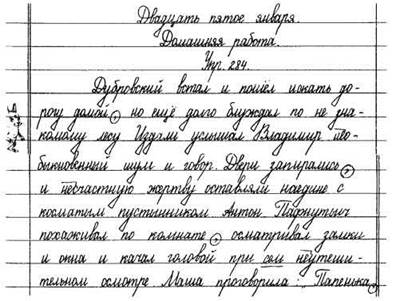 Двадцать пятое января.
Домашняя работа.
Упр. 284.
Дубровский встал и пошёл искать до-
рогу домой, но ещё долго блуждал по не зна-
комому лесу Уздами услышал Владимир нео-
быкновенный шум и говор. Двери запирались,
и несчастную жертву оставляли наедине с
косматым пустынником Антон Пафнутьич
похаживал по комнате, осматривал замки
и окна и качал головой при сем неутеши-
тельном осмотре. Маша проговорила: „Папенька,